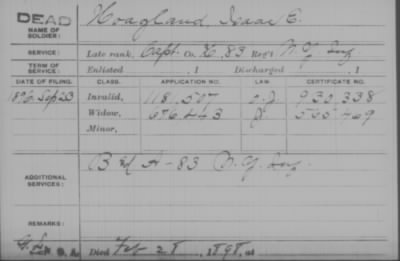 DEAD
NAME OF SOLDIER: Hoagland, Isaac E.
SERVICE: Late rank, Capt. Co. K, 83 Reg't N.Y. Inf.
TERM OF SERVICE: Enlisted , 1 Discharged , 1
DATE OF FILING. CLASS. APPLICATION NO. LAW. CERTIFICATE NO.
Invalid, 118,507 930,338
Widow, 676,443
Minor,
ADDITIONAL SERVICES: B & H - 83 N.Y. Inf.
REMARKS:
Died Feb 1898, at